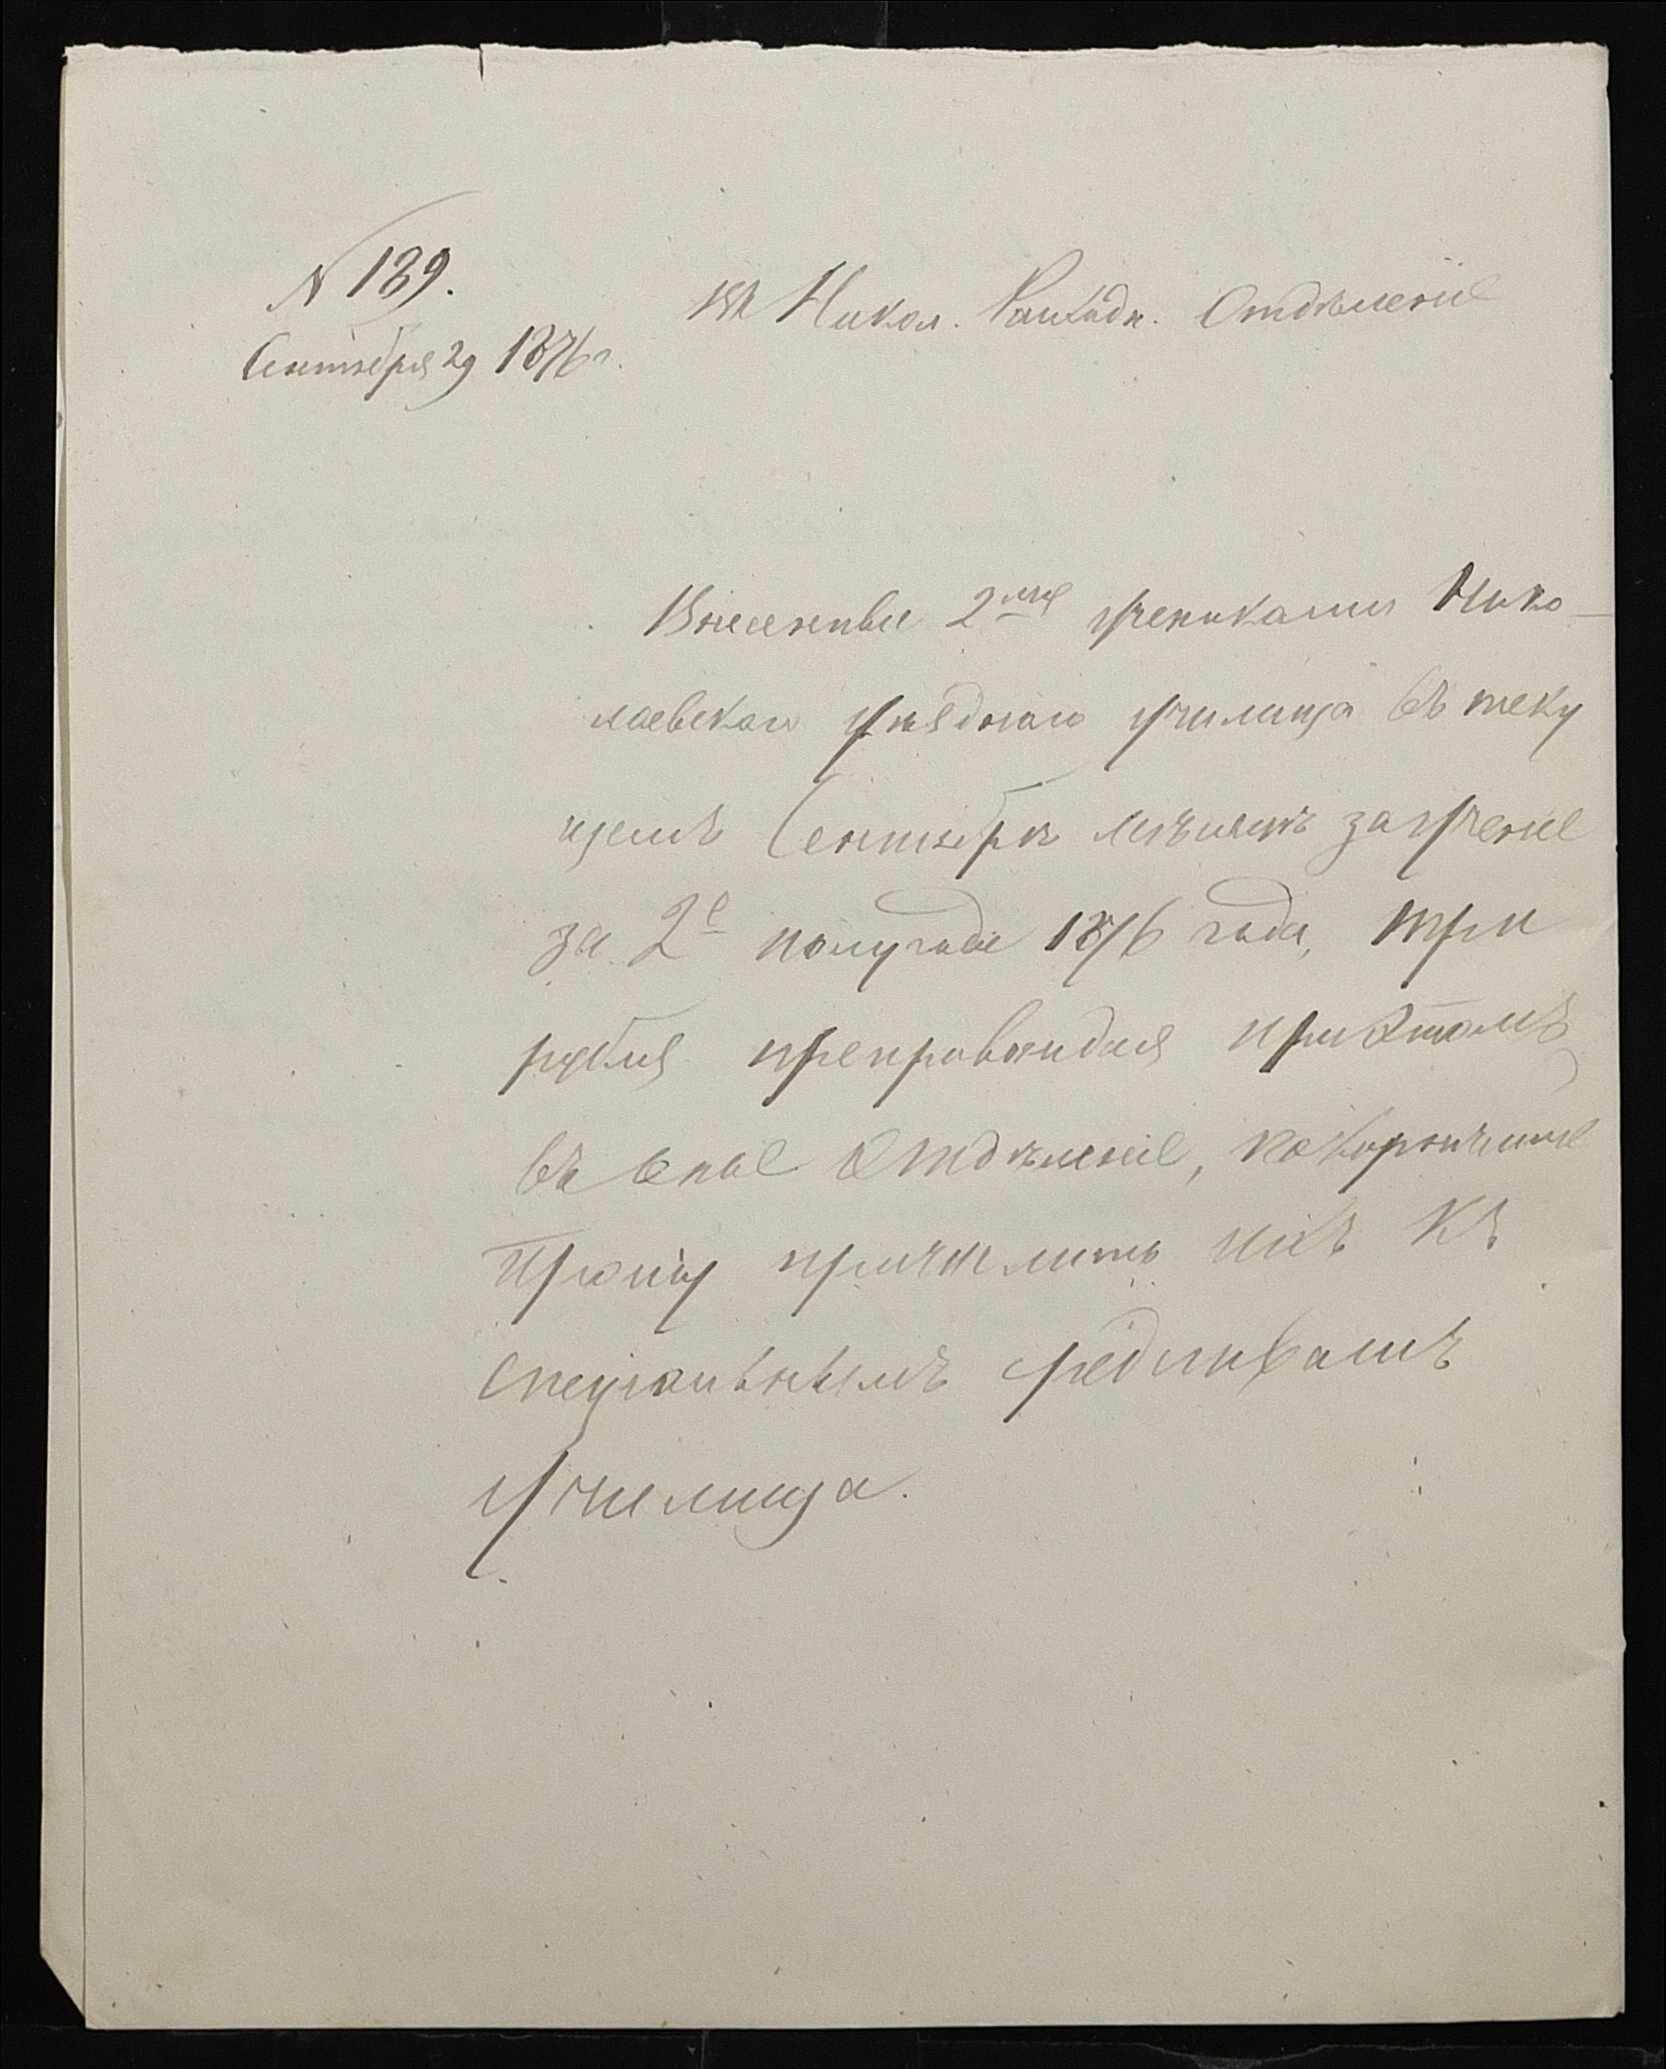 № 189.
Сентября 29 1876 г.
Въ Никол. Казнач. Отдѣленіе
Внесенные 2мя учениками Нико-
лаевскаго уѣзднаго училища въ теку
щемъ Сентябрѣ мѣсяцѣ за ученіе
за 2е полугодіе 1876 года, три
рубля препровождая при этомъ
въ оное Отдѣленіе, покорнѣйше
прошу причислить ихъ къ
спеціальнымъ средствамъ
училища.